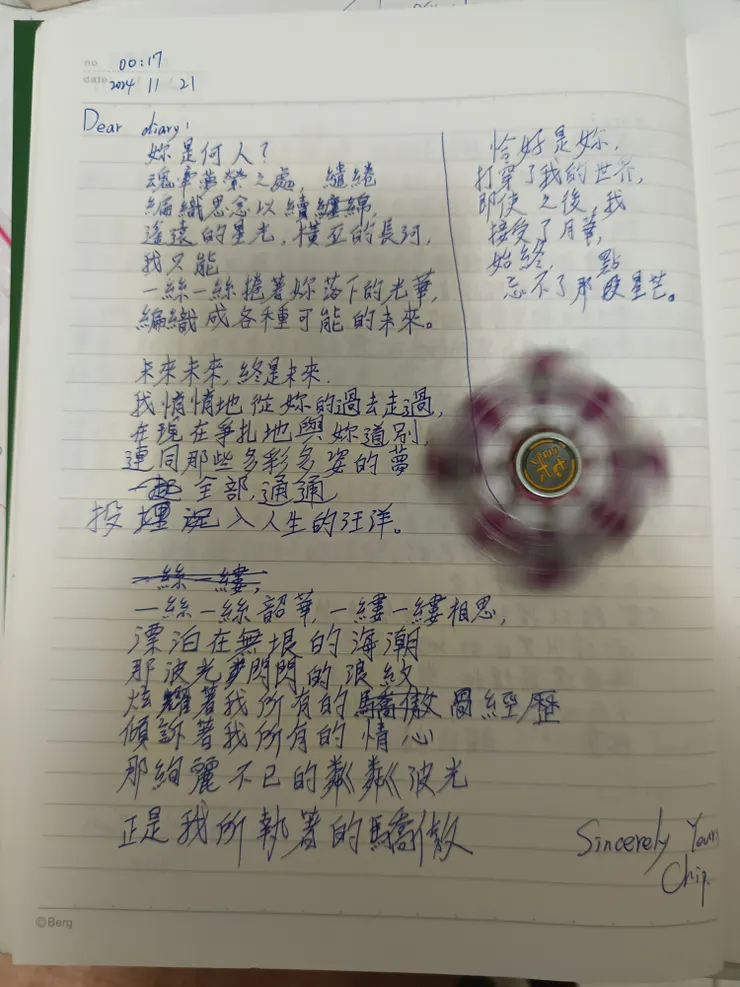 no 00:17
date 2024 11 21
Dear diary,
妳是何人?
魂牽夢縈之處, 繾綣
編織思念以續纏綿,
遙遠的星光, 橫亙的長河,
我只能
一絲一絲捲著妳落下的光華,
編織成各種可能的未來。
未來未來, 終是未來.
我悄悄地從妳的過去走過,
在現在爭扎地與妳道別,
連同那些多彩多姿的夢
一起 全部, 通通
投 埋 沉 入人生的汪洋。
一絲一縷,
一絲一絲韶華, 一縷一縷相思,
漂泊在無垠的海潮
那波光閃閃的浪紋
炫耀著我所有的驕傲 經歷
傾訴著我所有的情心
那絢麗不已的粼粼波光
正是我所執著的驕傲
恰好是妳,
打穿了我的世界,
即使之後, 我
接受了月華,
始終, 點
忘不了那段星芒。
Sincerely Yours
Chip.
©Berg